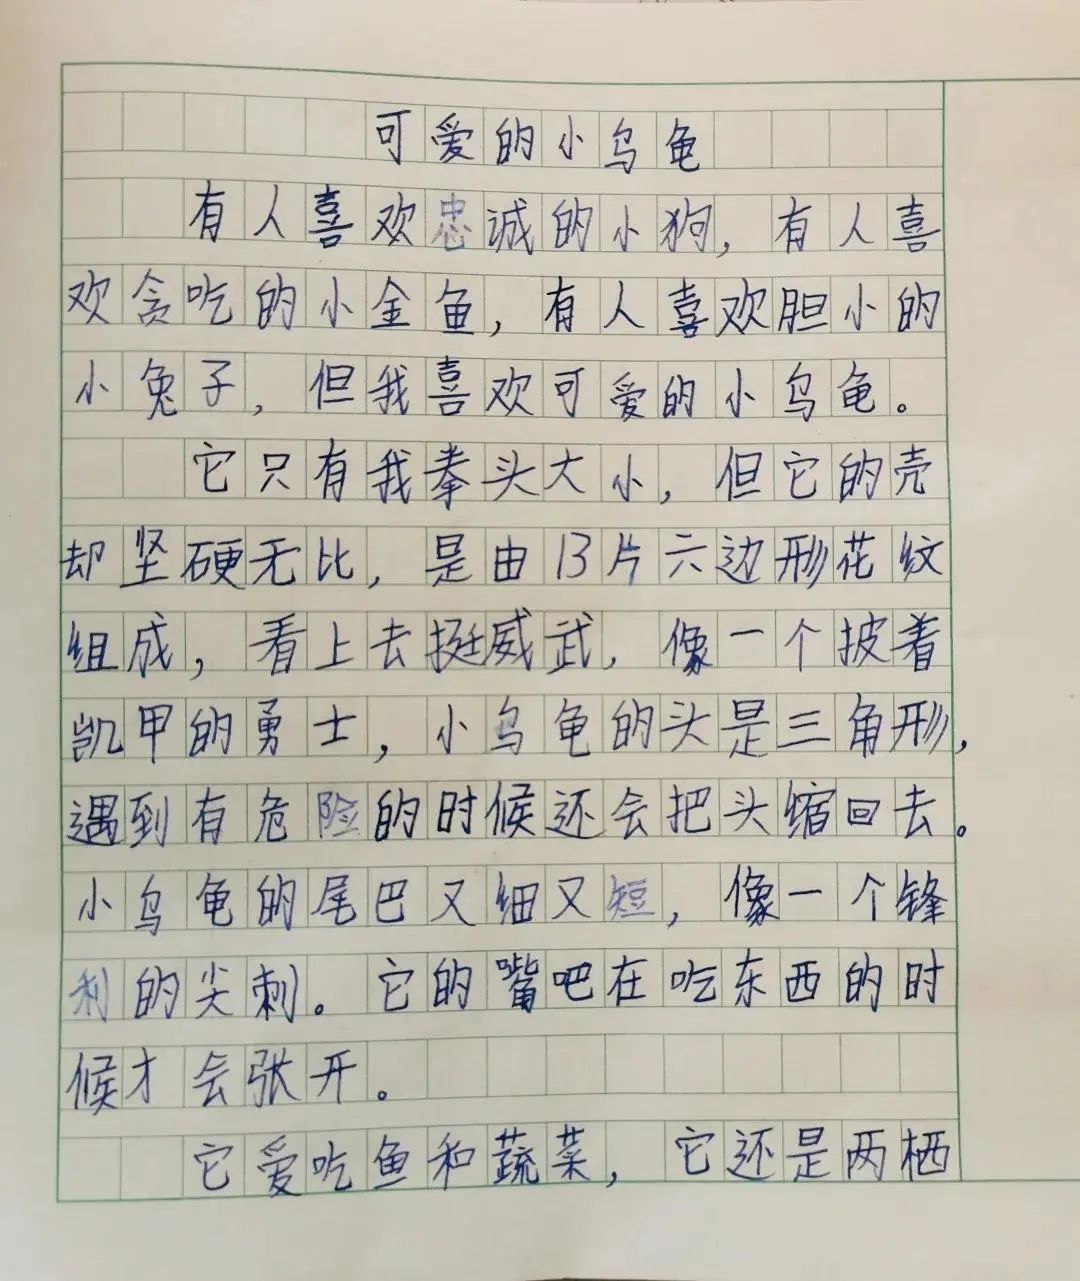 可爱的小乌龟
有人喜欢忠诚的小狗，有人喜
欢贪吃的小金鱼，有人喜欢胆小的
小兔子，但我喜欢可爱的小乌龟。
它只有我拳头大小，但它的壳
却坚硬无比，是由13片六边形花纹
组成，看上去挺威武，像一个披着
凯甲的勇士，小乌龟的头是三角形，
遇到有危险的时候还会把头缩回去。
小乌龟的尾巴又细又短，像一个锋
利的尖刺。它的嘴吧在吃东西的时
候才会张开。
它爱吃鱼和蔬菜，它还是两栖